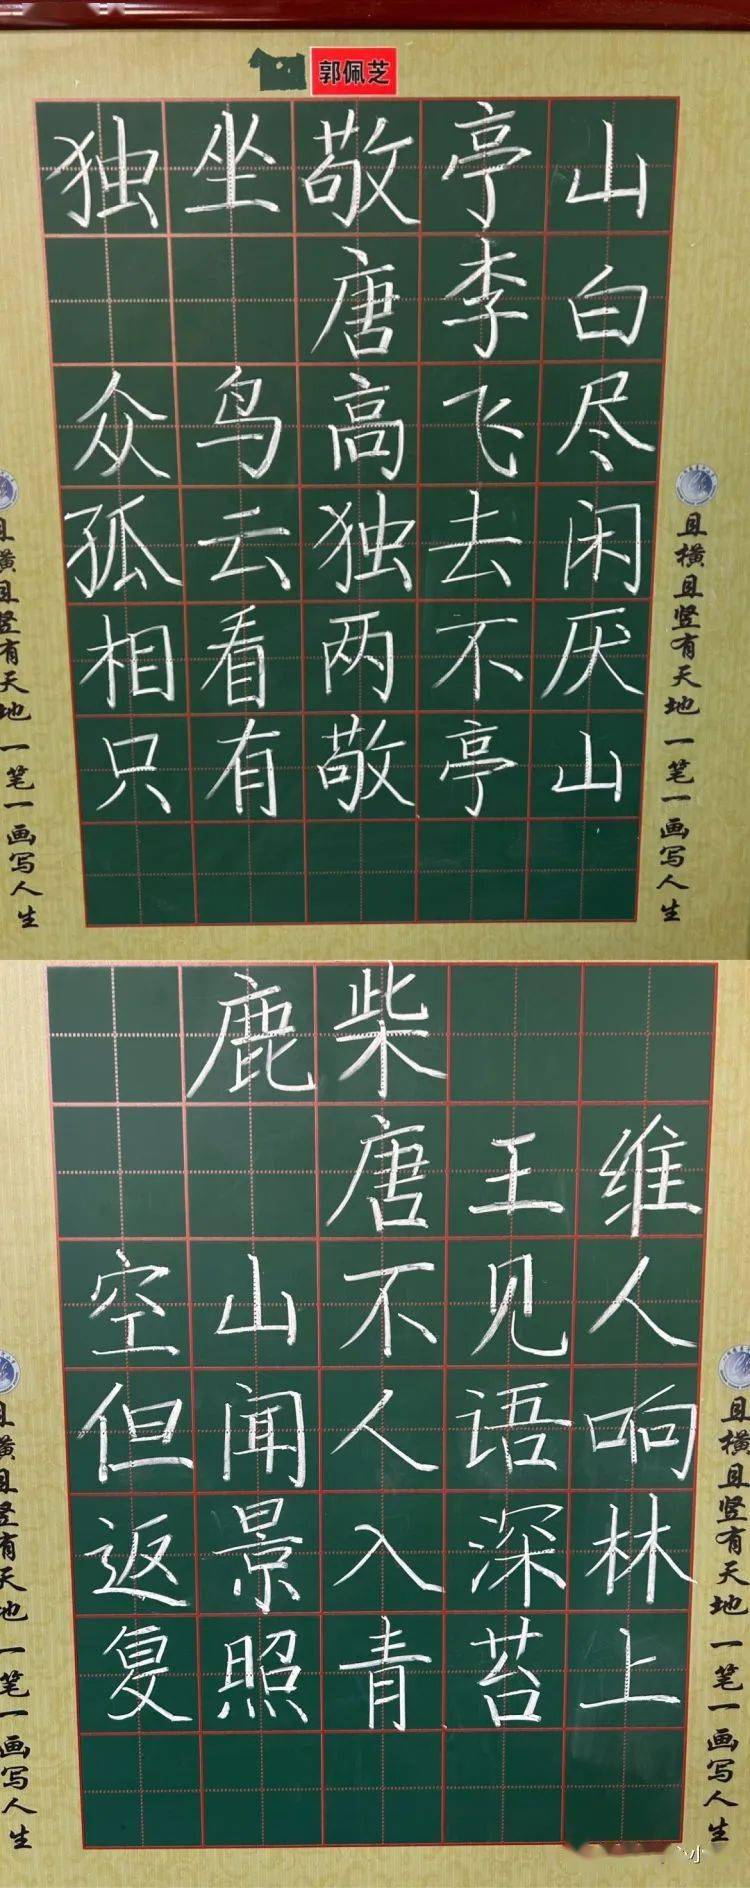 郭佩芝
独坐敬亭山
唐李白
众鸟高飞尽
孤云独去闲
相看两不厌
只有敬亭山
且横且竖有天地 一笔一画写人生
且横且竖有天地 一笔一画写人生
鹿柴
唐王维
空山不见人
但闻人语响
返景入深林
复照青苔上
且横且竖有天地 一笔一画写人生
且横且竖有天地 一笔一画写人生